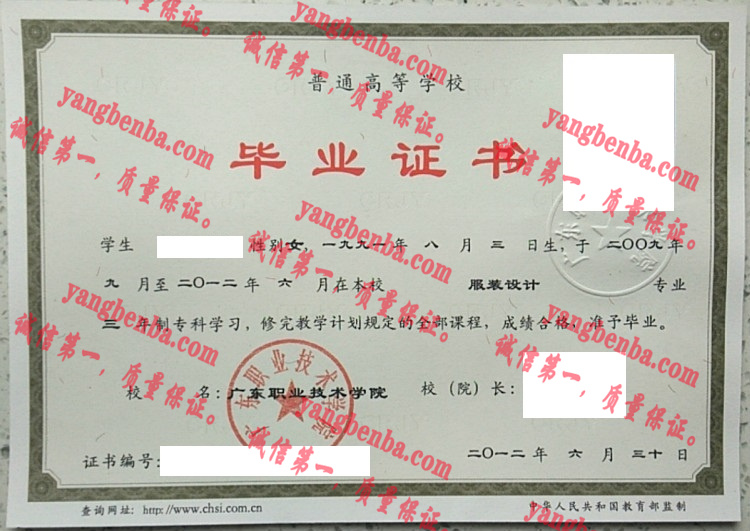 普通高等学校
毕业证书
学生 性别女，一九九一年 八 月 三 日生，于 二〇〇九年
九 月至二〇一二年 六 月在本校 服装设计 专业
三 年制专科学习，修完教学计划规定的全部课程，成绩合格，准予毕业。
校 名：广东职业技术学院 校（院）长：
广东职业技术学院
证书编号： 二〇一二年 六 月 三十日
查询网址：http://www.chsi.com.cn 中华人民共和国教育部监制
yangbenba.com
诚信第一，质量保证。
yangbenba.com
诚信第一，质量保证。
yangbenba.com
诚信第一，质量保证。
yangbenba.com
诚信第一，质量保证。
yangbenba.com
诚信第一，质量保证。
yangbenba.com
诚信第一，质量保证。
yangbenba.com
诚信第一，质量保证。
yangbenba.com
诚信第一，质量保证。